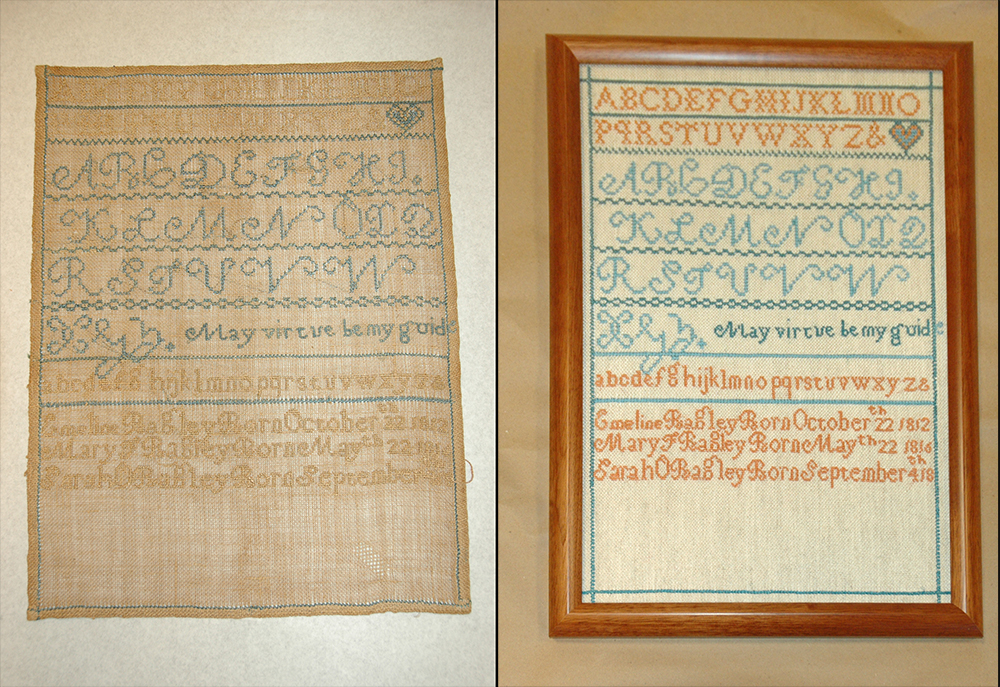 A B C D E F G H I.
K L M N O I Q
R S T U V W
X y z. May virtue be my guide
abcdefghijklmnopqrstuvwxyz&
Emeline Bagley Born October 22th 1812
Mary F Bagley Born May 22th
Sarah O Bagley Born September th
ABCDEFGHIJKLMNO
PQRSTUVWXYZ&
A B C D E F G H I.
K L M N O I Q
R S T U V W
X y z. May virtue be my guide
abcdefghijklmnopqrstuvwxyz&
Emeline Bagley Born October 22th 1812
Mary F Bagley Born May 22th 1816
Sarah O Bagley Born September 4th 18